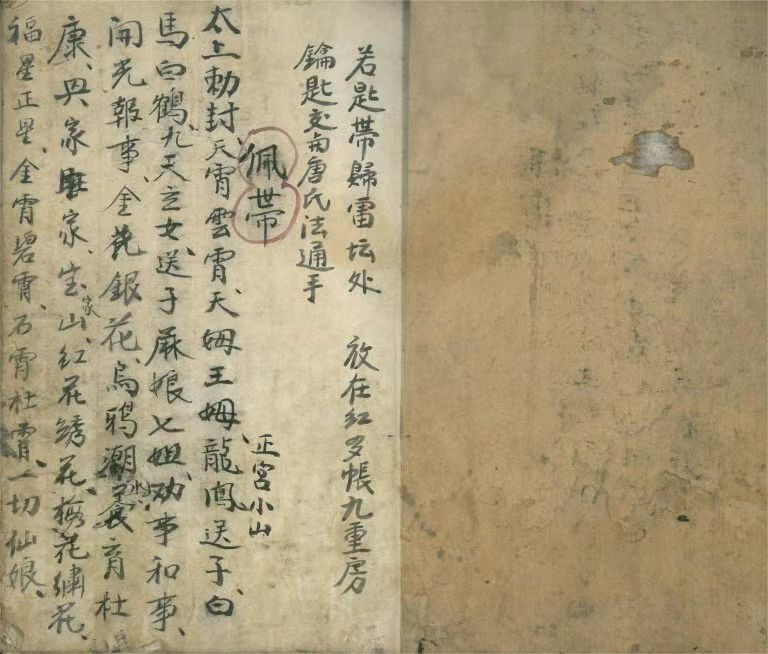 若匙帶歸雷坛处　放在紅罗帳九重房
鑰匙交与唐氏法通手
佩帶
正宮小山
太上勅封、天霄雲霄天、姆王姆、龍鳳送子、白
馬白鶴、九天玄女、送子麻娘七姐、劝事和事、
開光報事、金花銀花、烏鴉潮水　育杜
康、興家旺家、宝山家、紅花綉花、梅花綉花、
福星正星、金霄碧霄、石霄杜霄、一切仙娘、